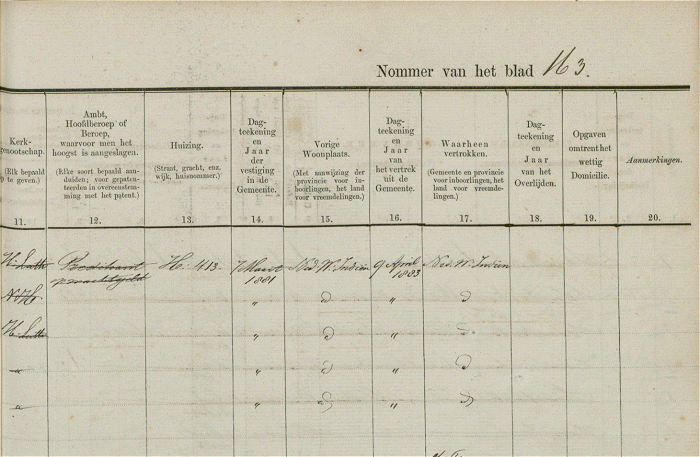 Nommer van het blad 163.
Kerk-
genootschap.
(Elk bepaald
op te geven.)
11.
Ambt,
Hoofdberoep of
Beroep,
waarvoor men het
hoogst is aangeslagen.
(Elke soort bepaald aan-
duiden; voor gepaten-
teerden in overeenstem-
ming met het patent.)
12.
Huizing.
(Straat, gracht, enz.
wijk, huisnommer.)
13.
Dag-
teekening
en
Jaar
der
vestiging in
de
Gemeente.
14.
Vorige
Woonplaats.
(Met aanwijzing der
provincie voor in-
boorlingen, het land
voor vreemdelingen.)
15.
Dag-
teekening
en
Jaar
van
het vertrek
uit de
Gemeente.
16.
Waarheen
vertrokken.
(Gemeente en provincie
voor inboorlingen, het
land voor vreemde-
lingen.)
17.
Dag-
teekening
en
Jaar
van het
Overlijden.
18.
Opgaven
omtrent het
wettig
Domicilie.
19.
Aanmerkingen.
20.
H. Luth H. 413. 7 Maart Ned W. Indien 9 April Ned. W. Indien
1881 1883
N H " d " d
H. Luth " d " d
" " d " d
" " d " d